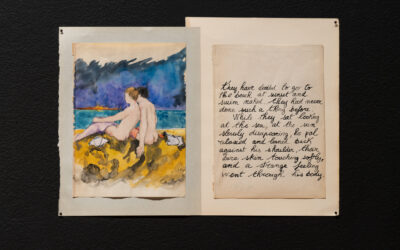 they have decided to go to
the beach at sunset and
swim naked. they had never
done such a thing before.
While they sat looking
at the sea, at the sun
slowly disappearing, he
relaxed and leaned back
against his shoulder, their
bare skin touching softly,
and a strange feeling
went through his body.